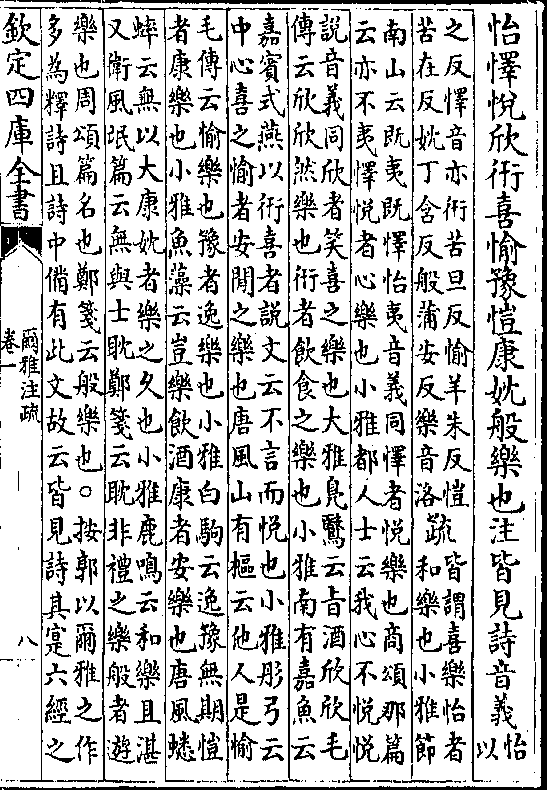 怡懌悅欣衎喜愉豫愷康妉般樂也注皆見詩音義怡以
之反懌音亦衎苦旦反愉羊朱反愷
苦在反妉丁含反般蒲安反樂音洛
疏
皆謂喜樂怡者
和樂也小雅節
南山云既夷既懌怡夷音義同懌者悅樂也商頌那篇
云亦不夷懌悅者心樂也小雅都人士云我心不悅悅
說音義同欣者笑喜之樂也大雅鳧鷖云旨酒欣欣毛
傳云欣欣然樂也衎者飲食之樂也小雅南有嘉魚云
嘉賓式燕以衎喜者說文云不言而悅也小雅彤弓云
中心喜之愉者安閒之樂也唐風山有樞云他人是愉
毛傳云愉樂也豫者逸樂也小雅白駒云逸豫無期愷
者康樂也小雅魚藻云豈樂飲酒康者安樂也唐風蟋
蟀云無以大康妉者樂之久也小雅鹿鳴云和樂且湛
又衛風氓篇云無與士耽鄭箋云耽非禮之樂般者遊
樂也周頌篇名也鄭箋云般樂也○按郭以爾雅之作
多為釋詩且詩中備有此文故云皆見詩其寔六經之
欽定四庫全書
爾雅注疏
卷一
八